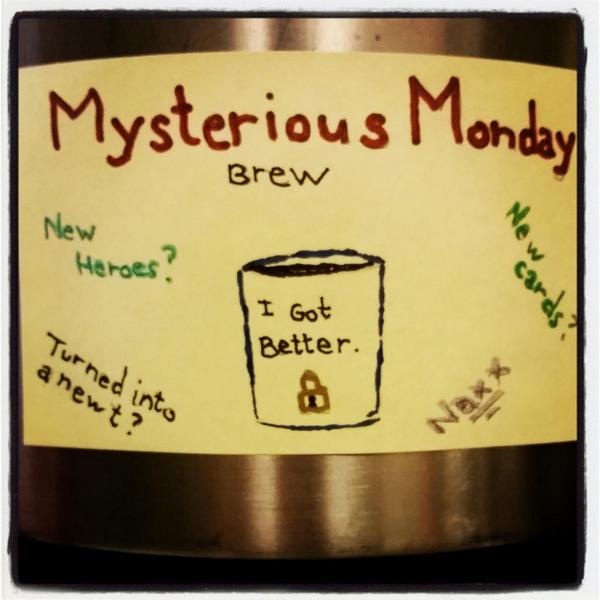 Mysterious Monday
Brew
New
Heroes?
New
cards?
I Got
Better.
Turned into
a newt?
Naxx